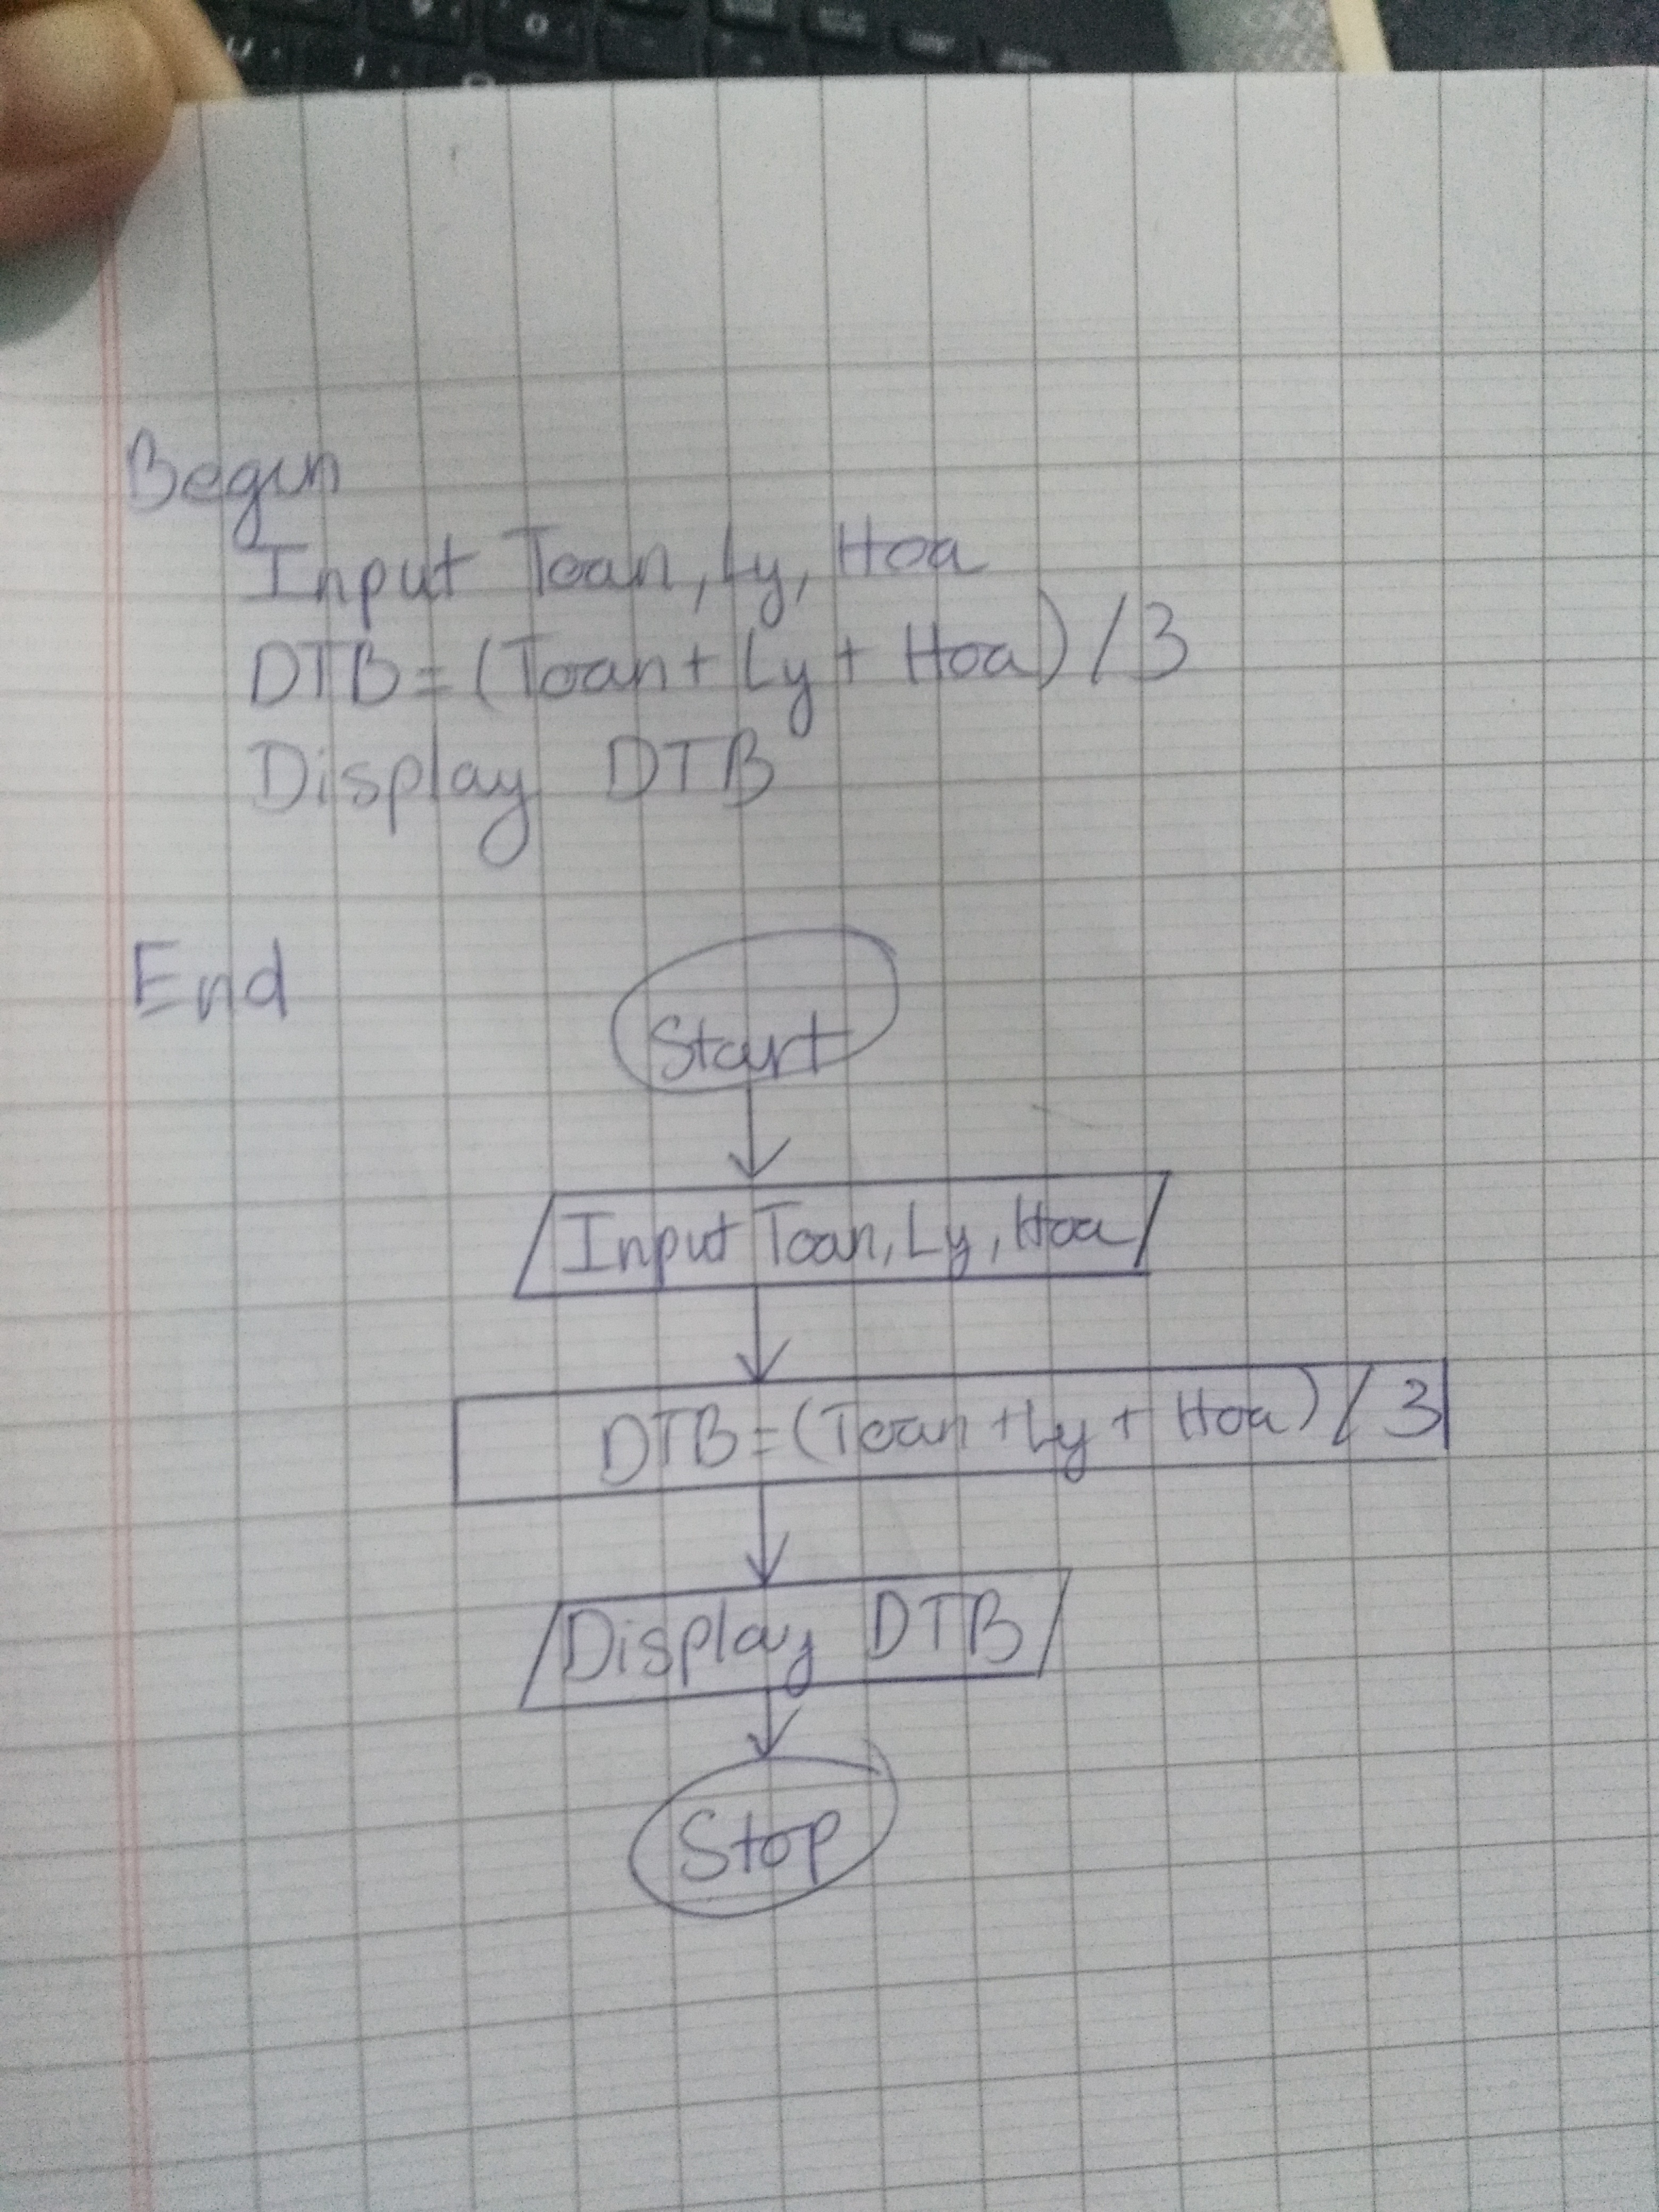 Begin
Input Toan, Ly, Hoa
DTB = (Toan + Ly + Hoa) / 3
Display DTB
End
Start
Input Toan, Ly, Hoa
DTB = (Toan + Ly + Hoa) / 3
Display DTB
Stop